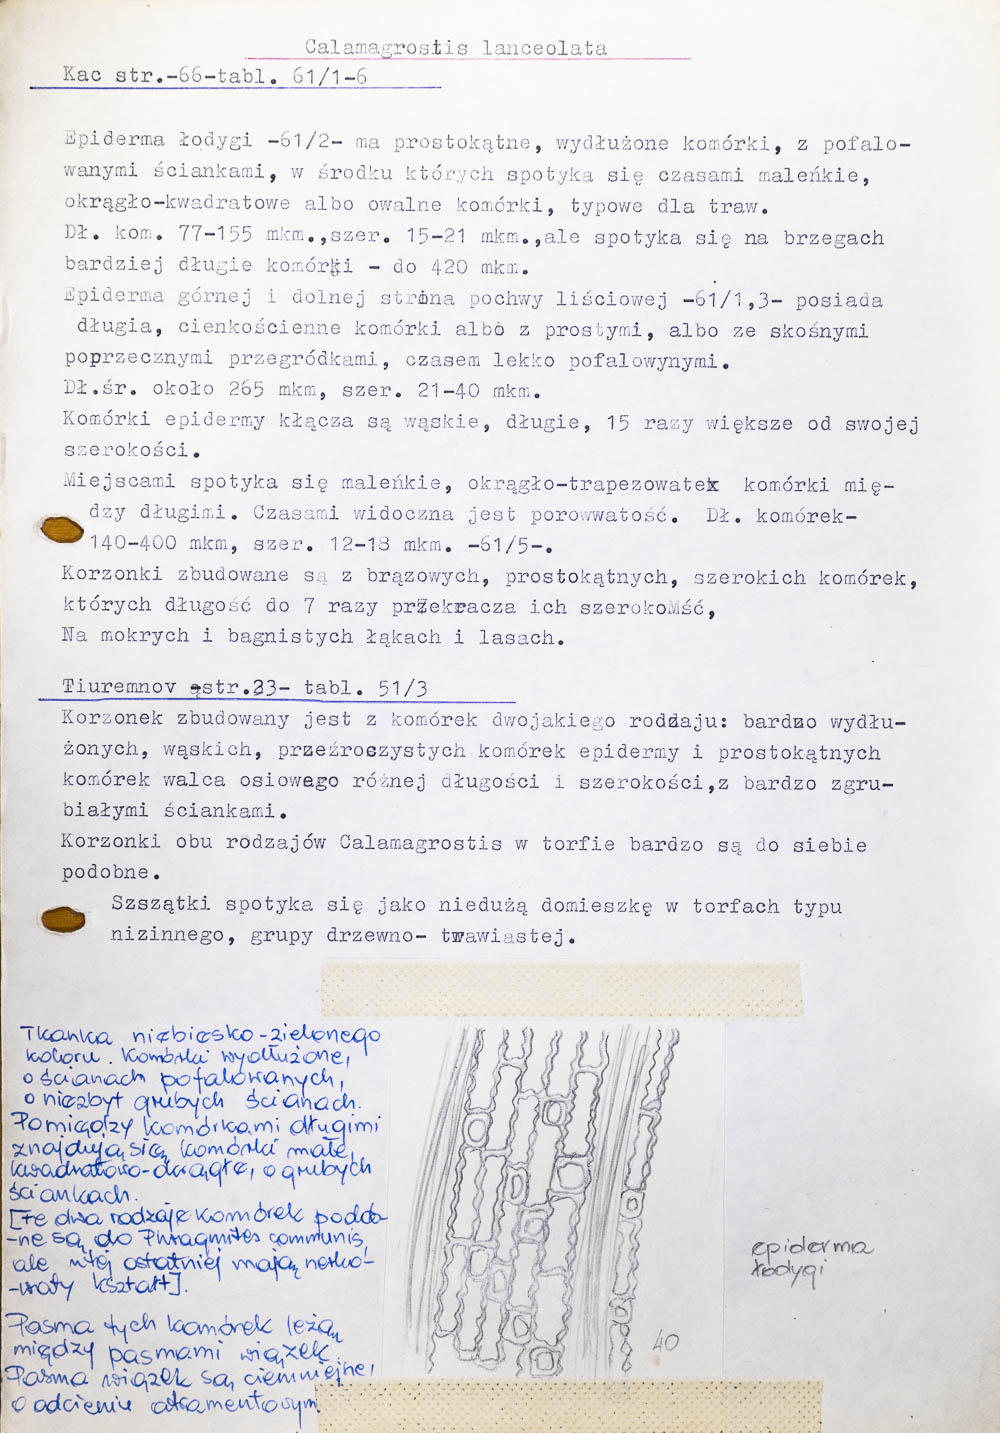 Calamagrostis lanceolata
Kac str.-66-tabl. 61/1-6
Epiderma łodygi -61/2- ma prostokątne, wydłużone komórki, z pofalo-
wanymi ściankami, w środku których spotyka się czasami maleńkie,
okrągło-kwadratowe albo owalne komórki, typowe dla traw.
Dł. kom. 77-155 mkm.,szer. 15-21 mkm.,ale spotyka się na brzegach
bardziej długie komórki - do 420 mkm.
Epiderma górnej i dolnej strona pochwy liściowej -61/1,3- posiada
długia, cienkościenne komórki albo z prostymi, albo ze skośnymi
poprzecznymi przegródkami, czasem lekko pofalowynymi.
Dł.śr. około 265 mkm, szer. 21-40 mkm.
Komórki epidermy kłącza są wąskie, długie, 15 razy większe od swojej
szerokości.
Miejscami spotyka się maleńkie, okrągło-trapezowate komórki mię-
dzy długimi. Czasami widoczna jest porowwatość. Dł. komórek-
140-400 mkm, szer. 12-18 mkm. -61/5-.
Korzonki zbudowane są z brązowych, prostokątnych, szerokich komórek,
których długość do 7 razy przekracza ich szerokość,
Na mokrych i bagnistych łąkach i lasach.
Tiuremnov str.23- tabl. 51/3
Korzonek zbudowany jest z komórek dwojakiego rodzaju: bardzo wydłu-
żonych, wąskich, przeźroczystych komórek epidermy i prostokątnych
komórek walca osiowego różnej długości i szerokości,z bardzo zgru-
białymi ściankami.
Korzonki obu rodzajów Calamagrostis w torfie bardzo są do siebie
podobne.
Szszątki spotyka się jako niedużą domieszkę w torfach typu
nizinnego, grupy drzewno- trawiastej.
Tkanka niebiesko-zielonego
koloru. Komórki wydłużone,
o ścianach pofalowanych,
o niezbyt grubych ścianach.
Pomiędzy komórkami długimi
znajdują się komórki małe,
kwadratowo-okrągłe, o grubych
ściankach.
[te dwa rodzaje komórek podob-
-ne są do Phragmites communis,
ale w tej ostatniej mają nerko-
-waty kształt].
Pasma tych komórek leżą
między pasmami wiązek.
Pasma wiązek są ciemniejne,
o odcieniu atramentowym.
epiderma
łodygi
40